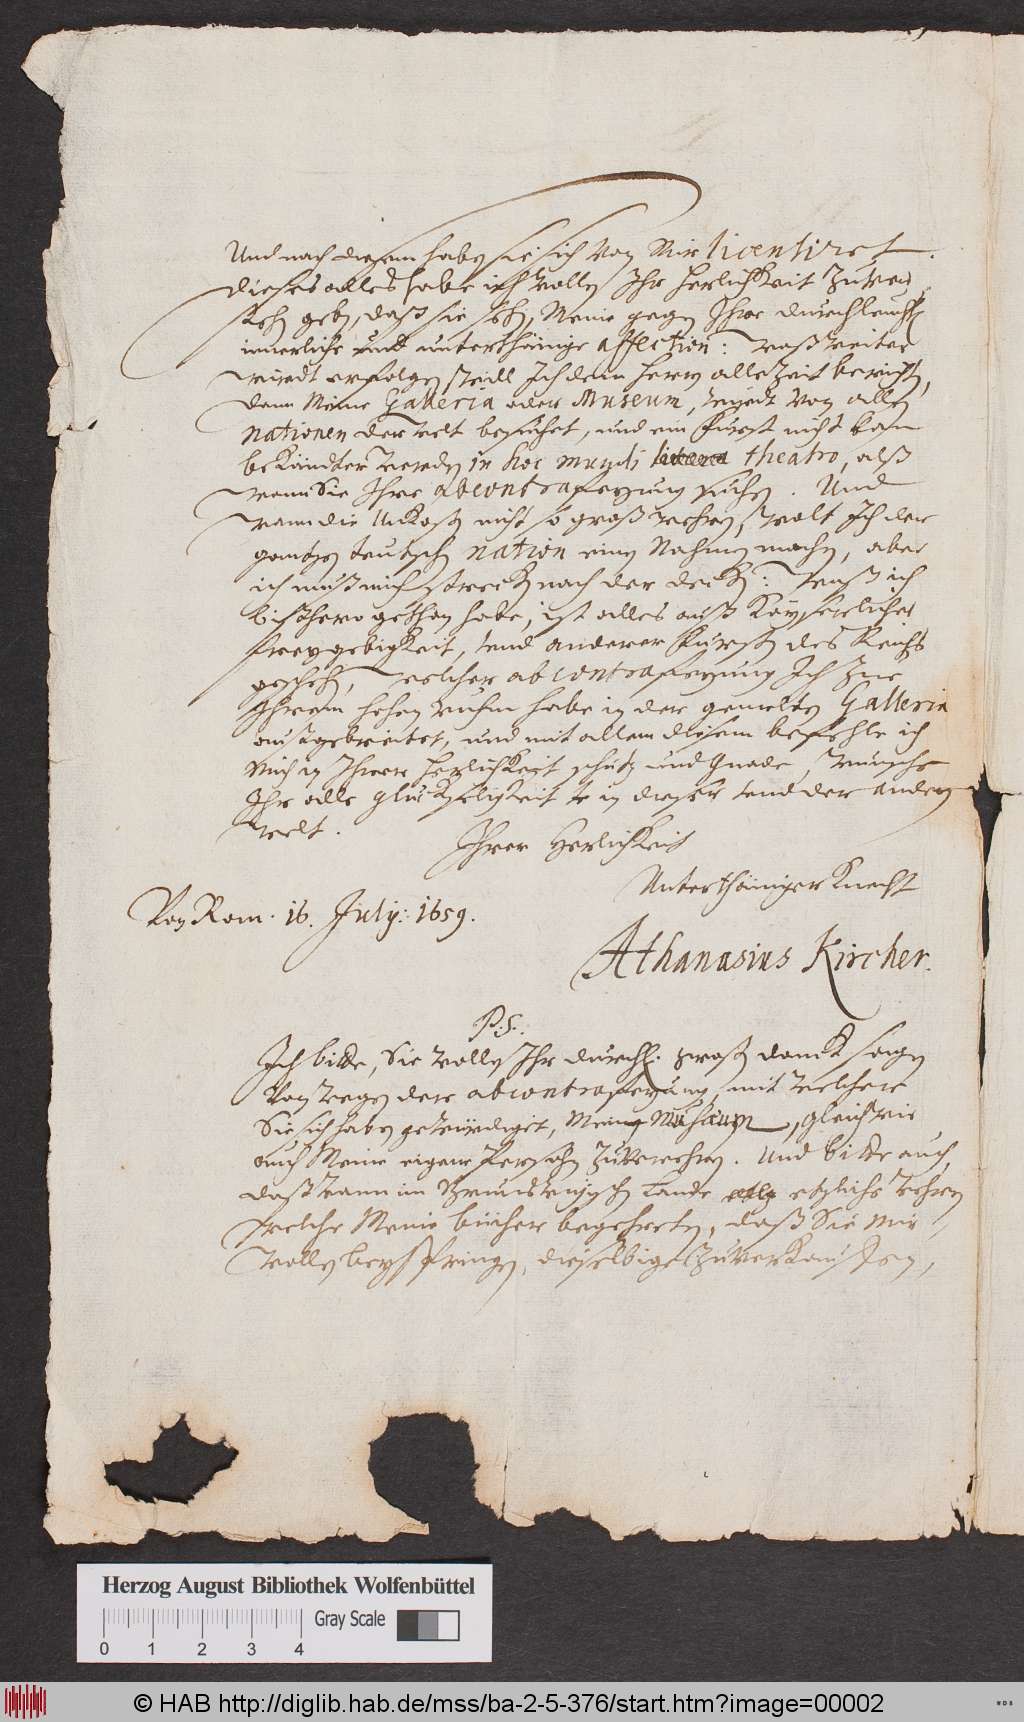 Und nach diesem haben sie sich Von Mir licentiret.
dieses alles habe ich wollen Ihr Herlichkeit zuver
stehn geben, daß sie sehen, Meine gegen Ihre durchleucht.
innerliche und unterthänige affection: waß weiter
wirdt erfolgen, will Ich dem herrn allezeit berichten,
dann Meine Galleria oder Museum, wirdt Von allen
nationen der welt besuchet, und ein Fürst nicht kann
bekandter werden in hoc mundi theatro, alß
wann Sie Ihre abcontrafeyung sehen. Und
wann die Unkosten nicht so groß wehren, wolt Ich der
gantzen teutschen nation einen Nahmen machen, aber
ich muß mich strecken nach der decken: Waß ich
bißhero gethan habe, ist alles auß Kayserlicher
freygebigkeit, und anderer Fürsten des Reichs
geschehen, welcher abcontrafeyung Ich zue
Ihrem hohen ruhm habe in der gemelten Galleria
außgebreitet, und mit allem diesem befehle ich
Mich in Ihrer Herlichkeit schutz und Gnade, wünsche
Ihr alle glückseligkeit in dieser und der andern
welt.
Ihrer Herlichkeit
Unterthäniger Knecht
Von Rom. 16. July: 1659.
Athanasius Kircher.
P.S.
Ich bitte, Sie wollen Ihr durchl. danck sagen
Von wegen der abcontrafeyung, mit welcher
Sie sich haben gewürdiget, Mein Musæum, gleich wie
auch Meine eigene Persohn zuverehren. Und bitte auch,
daß wann im Lande etzliche wehren
welche Meine bücher begehreten, daß Sie Mir
wollen beyspringen, dieselbige zuverkauffen,
Herzog August Bibliothek Wolfenbüttel
Gray Scale
0 1 2 3 4
© HAB http://diglib.hab.de/mss/ba-2-5-376/start.htm?image=00002